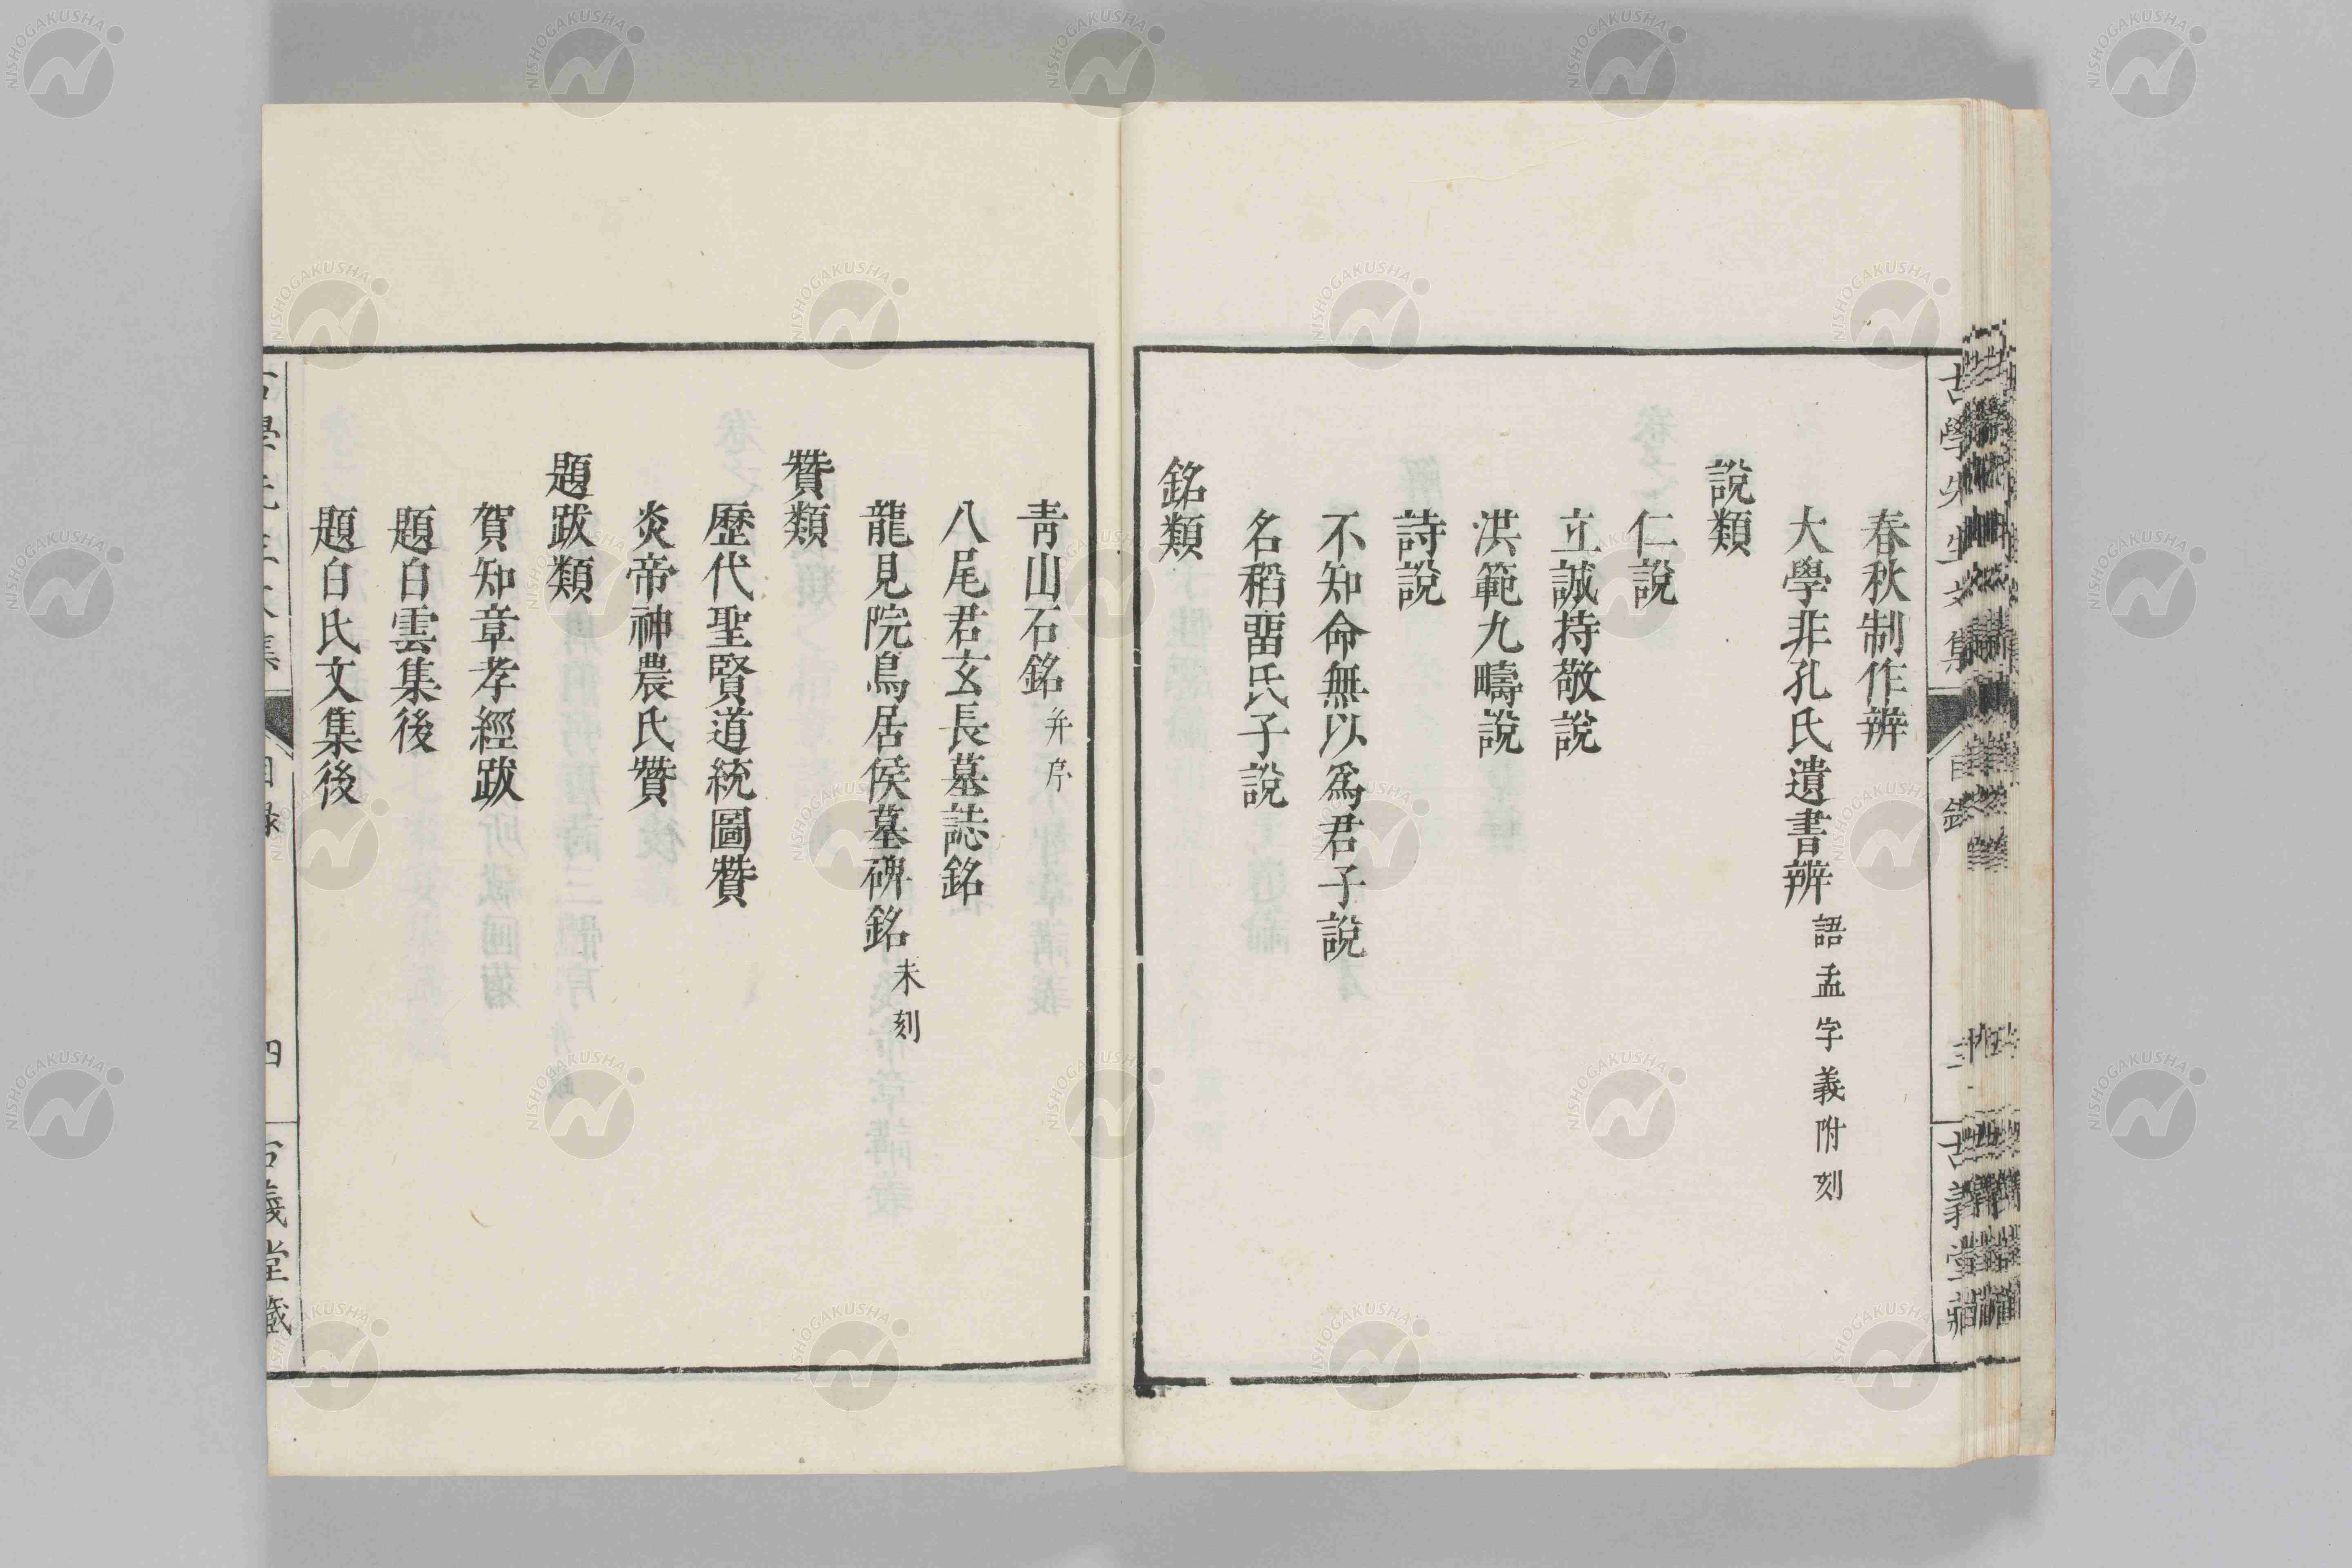 古學先生文集 目錄 三 古義堂藏
春秋制作辨
大學非孔氏遺書辨 語孟字義附刻
說類
仁說
立誠持敬說
洪範九疇說
詩說
不知命無以爲君子說
名稻畱氏子說
銘類
青山石銘 并序
八尾君玄長墓誌銘
龍見院鳥居侯墓碑銘 未刻
贊類
歷代聖賢道統圖贊
炎帝神農氏贊
題跋類
賀知章孝經跋
題白雲集後
題白氏文集後
古學先生文集 目錄 四 古義堂藏
NISHOGAKUSHA